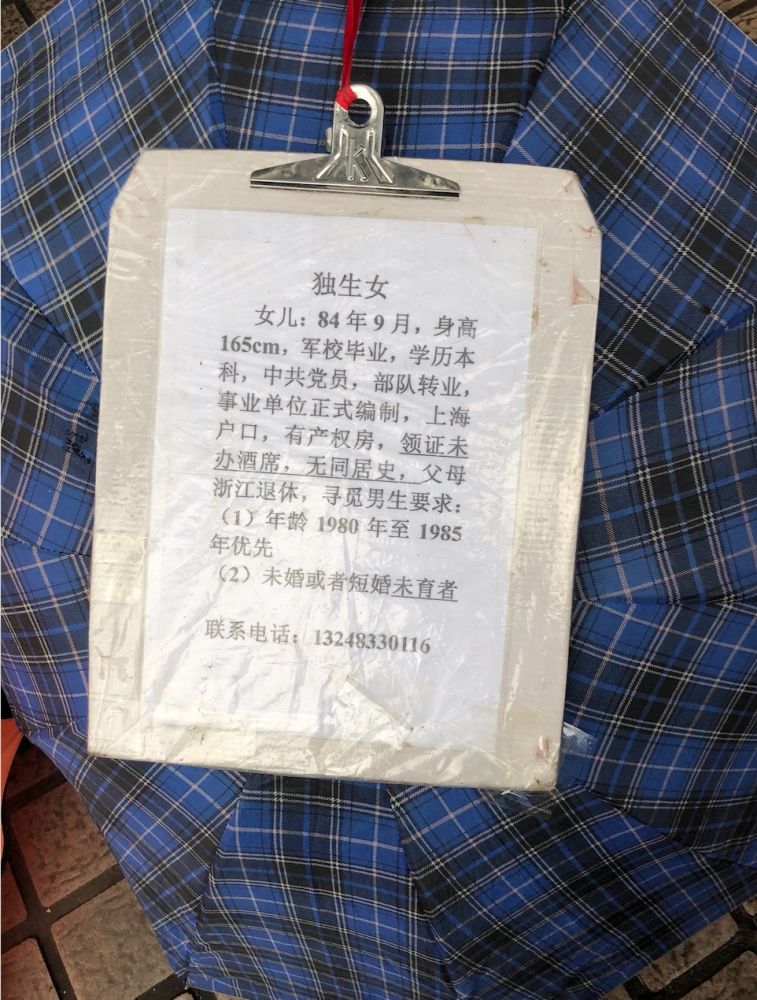 K
独生女
女儿：84年9月，身高
165cm，军校毕业，学历本
科，中共党员，部队转业，
事业单位正式编制，上海
户口，有产权房，领证未
办酒席，无同居史，父母
浙江退休，寻觅男生要求：
（1）年龄 1980 年至 1985
年优先
（2）未婚或者短婚未育者
联系电话：13248330116